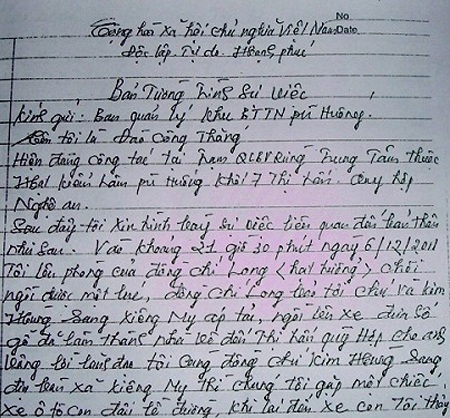 No
Cộng hoà xã hội chủ nghĩa Việt Nam Date
Độc lập. Tự do. Hạnh phúc
Bản Tường Trình Sự việc
Kính gửi: Ban quản lý khu BTTN pù Huống.
Tên tôi là Đào Công Thắng
Hiện đang công tác tại Trạm QLBV Rừng Trung Tâm thuộc
Hạt kiểm lâm pù Huống Khối 7 Thị trấn. Quỳ hợp
Nghệ an.
Sau đây tôi xin trình bày sự việc liên quan đến bản thân
như sau. Vào khoảng 21 giờ 30 phút ngày 6/12/2011
Tôi lên phòng của đồng chí Long (hạt trưởng) chơi
ngồi được một lúc, đồng chí Long bảo tôi chú và kim
Hưng Sang xiềng My áp tải, ngồi lên xe đưa số
gỗ đã làm thành nhà về đến Thị trấn quỳ Hợp cho anh
tôi cùng đồng chí Kim Hưng Sang
xã xiềng My thì chúng tôi gặp một chiếc
xe ô tô con đậu lề đường, khi lại đến xe con Tôi thấy